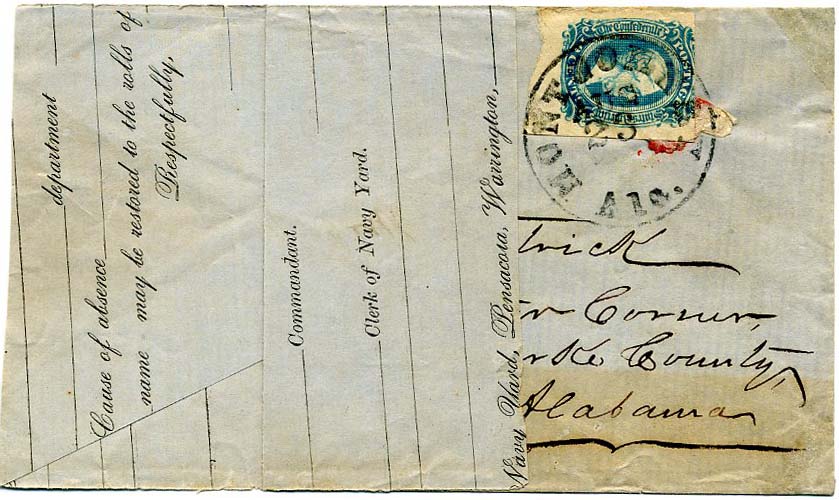 department
Cause of absence
name may be restored to the rolls of
Respectfully,
Commandant.
Clerk of Navy Yard.
Navy Yard, Pensacola, Warrington,
The Confederate
POSTAGE
Ala.
trick
Corner,
rke County,
Alabama